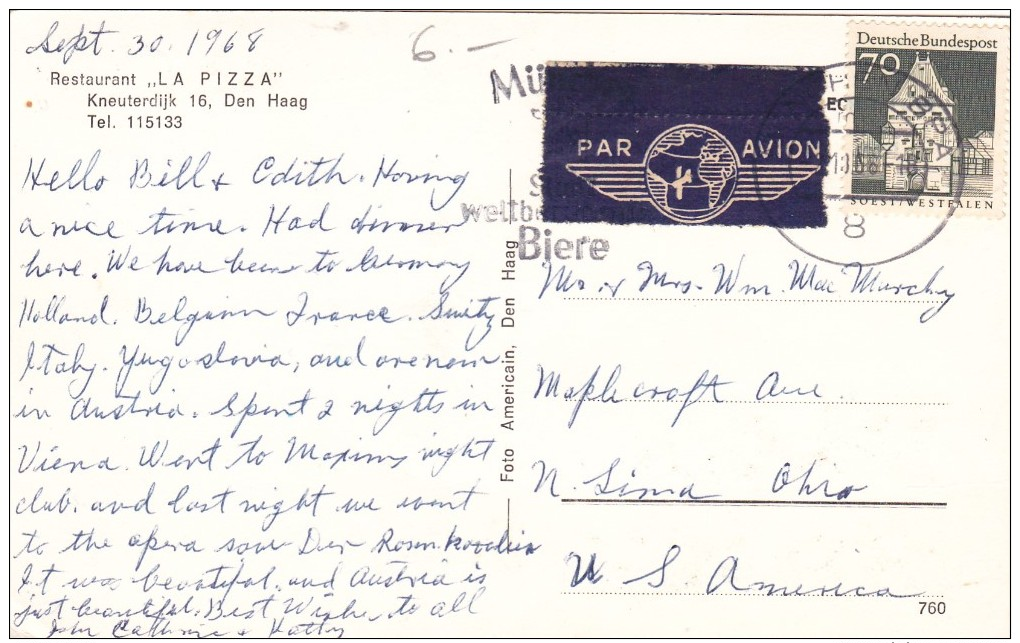 Sept. 30. 1968
6.—
Restaurant „LA PIZZA"
Kneuterdijk 16, Den Haag
Tel. 115133
Hello Bill & Edith. Having
a nice time. Had dinner
here. We have been to Germany
Holland. Belgium France. Switz
Italy. Yugoslavia, and are now
in Austria. Spent 2 nights in
Viena. Went to Maxims night
club. and last night we went
to the opera saw Der Rosenkavalier
It was beautiful. and Austria is
just beautiful. Best Wishes to all
John Cathrine & Hatty
Foto Americain, Den Haag
Mü
weltbe
Biere
PAR AVION
8
Deutsche Bundespost
70
SOEST/WESTFALEN
Mr & Mrs. Wm. Mac Murchy
Maplecroft Ave.
N. Lima Ohio
U S America
760